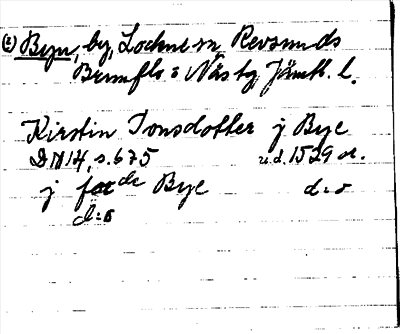 (2) Byn, by, Lockne sn, Revsunds
Brunflo o Näs tg Jämtl. l.
Kirstin Jonsdotter j Bye
DN 14, s. 675 u.d. 1529 or.
j forde Bye d:o
d:o